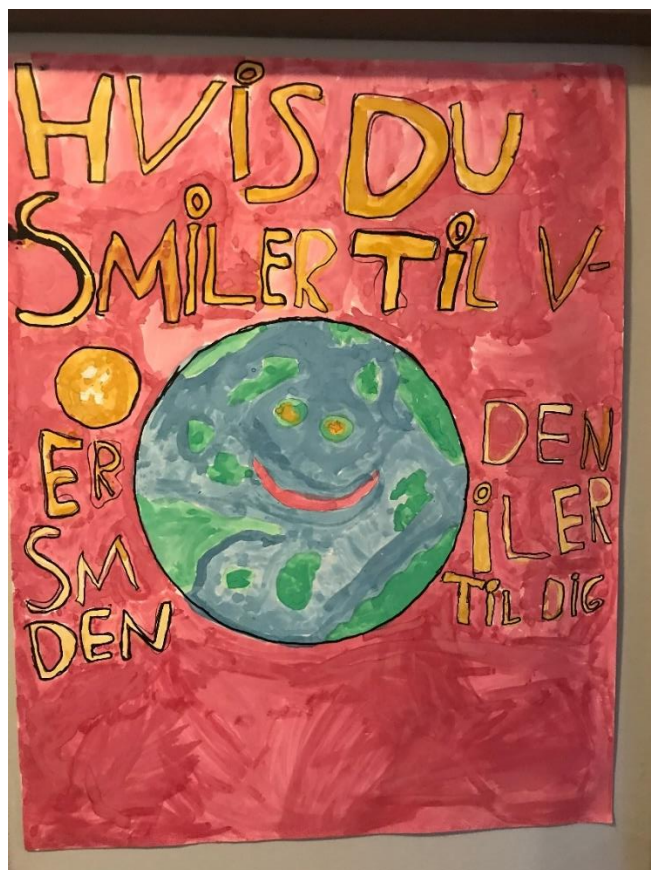 HVIS DU
SMILER TIL V-
ER DEN
SM ILER
DEN TIL DIG